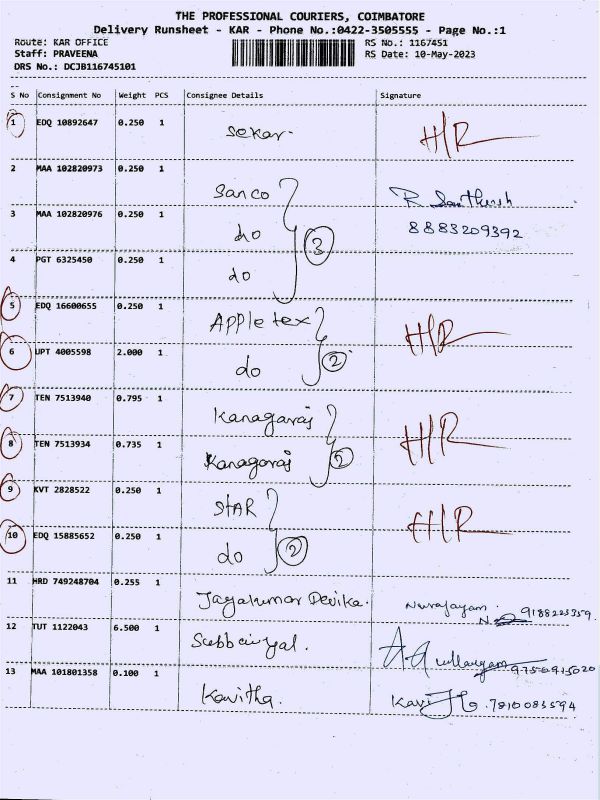 THE PROFESSIONAL COURIERS, COIMBATORE
Delivery Runsheet - KAR - Phone No.:0422-3505555 - Page No.:1
Route: KAR OFFICE RS No.: 1167451
Staff: PRAVEENA RS Date: 10-May-2023
DRS No.: DCJB116745101
S No Consignment No Weight PCS Consignee Details Signature
1 EDQ 10892647 0.250 1 Sekar. H/R
2 MAA 102820973 0.250 1 Sanco R
3 MAA 102820976 0.250 1 do 3 8883209392
4 PGT 6325450 0.250 1 do
5 EDQ 16600655 0.250 1 Apple tex H/R
6 UPT 4005598 2.000 1 do 2
7 TEN 7513940 0.795 1 Kanagaraj H/R
8 TEN 7513934 0.735 1 Kanagaraj 2
9 KVT 2828522 0.250 1 STAR H/R
10 EDQ 15885652 0.250 1 do 2
11 HRD 749248704 0.255 1 Jayakumar Devika.
12 TUT 1122043 6.500 1 9750915020
13 MAA 101801358 0.100 1 Kavitha. 7810083594